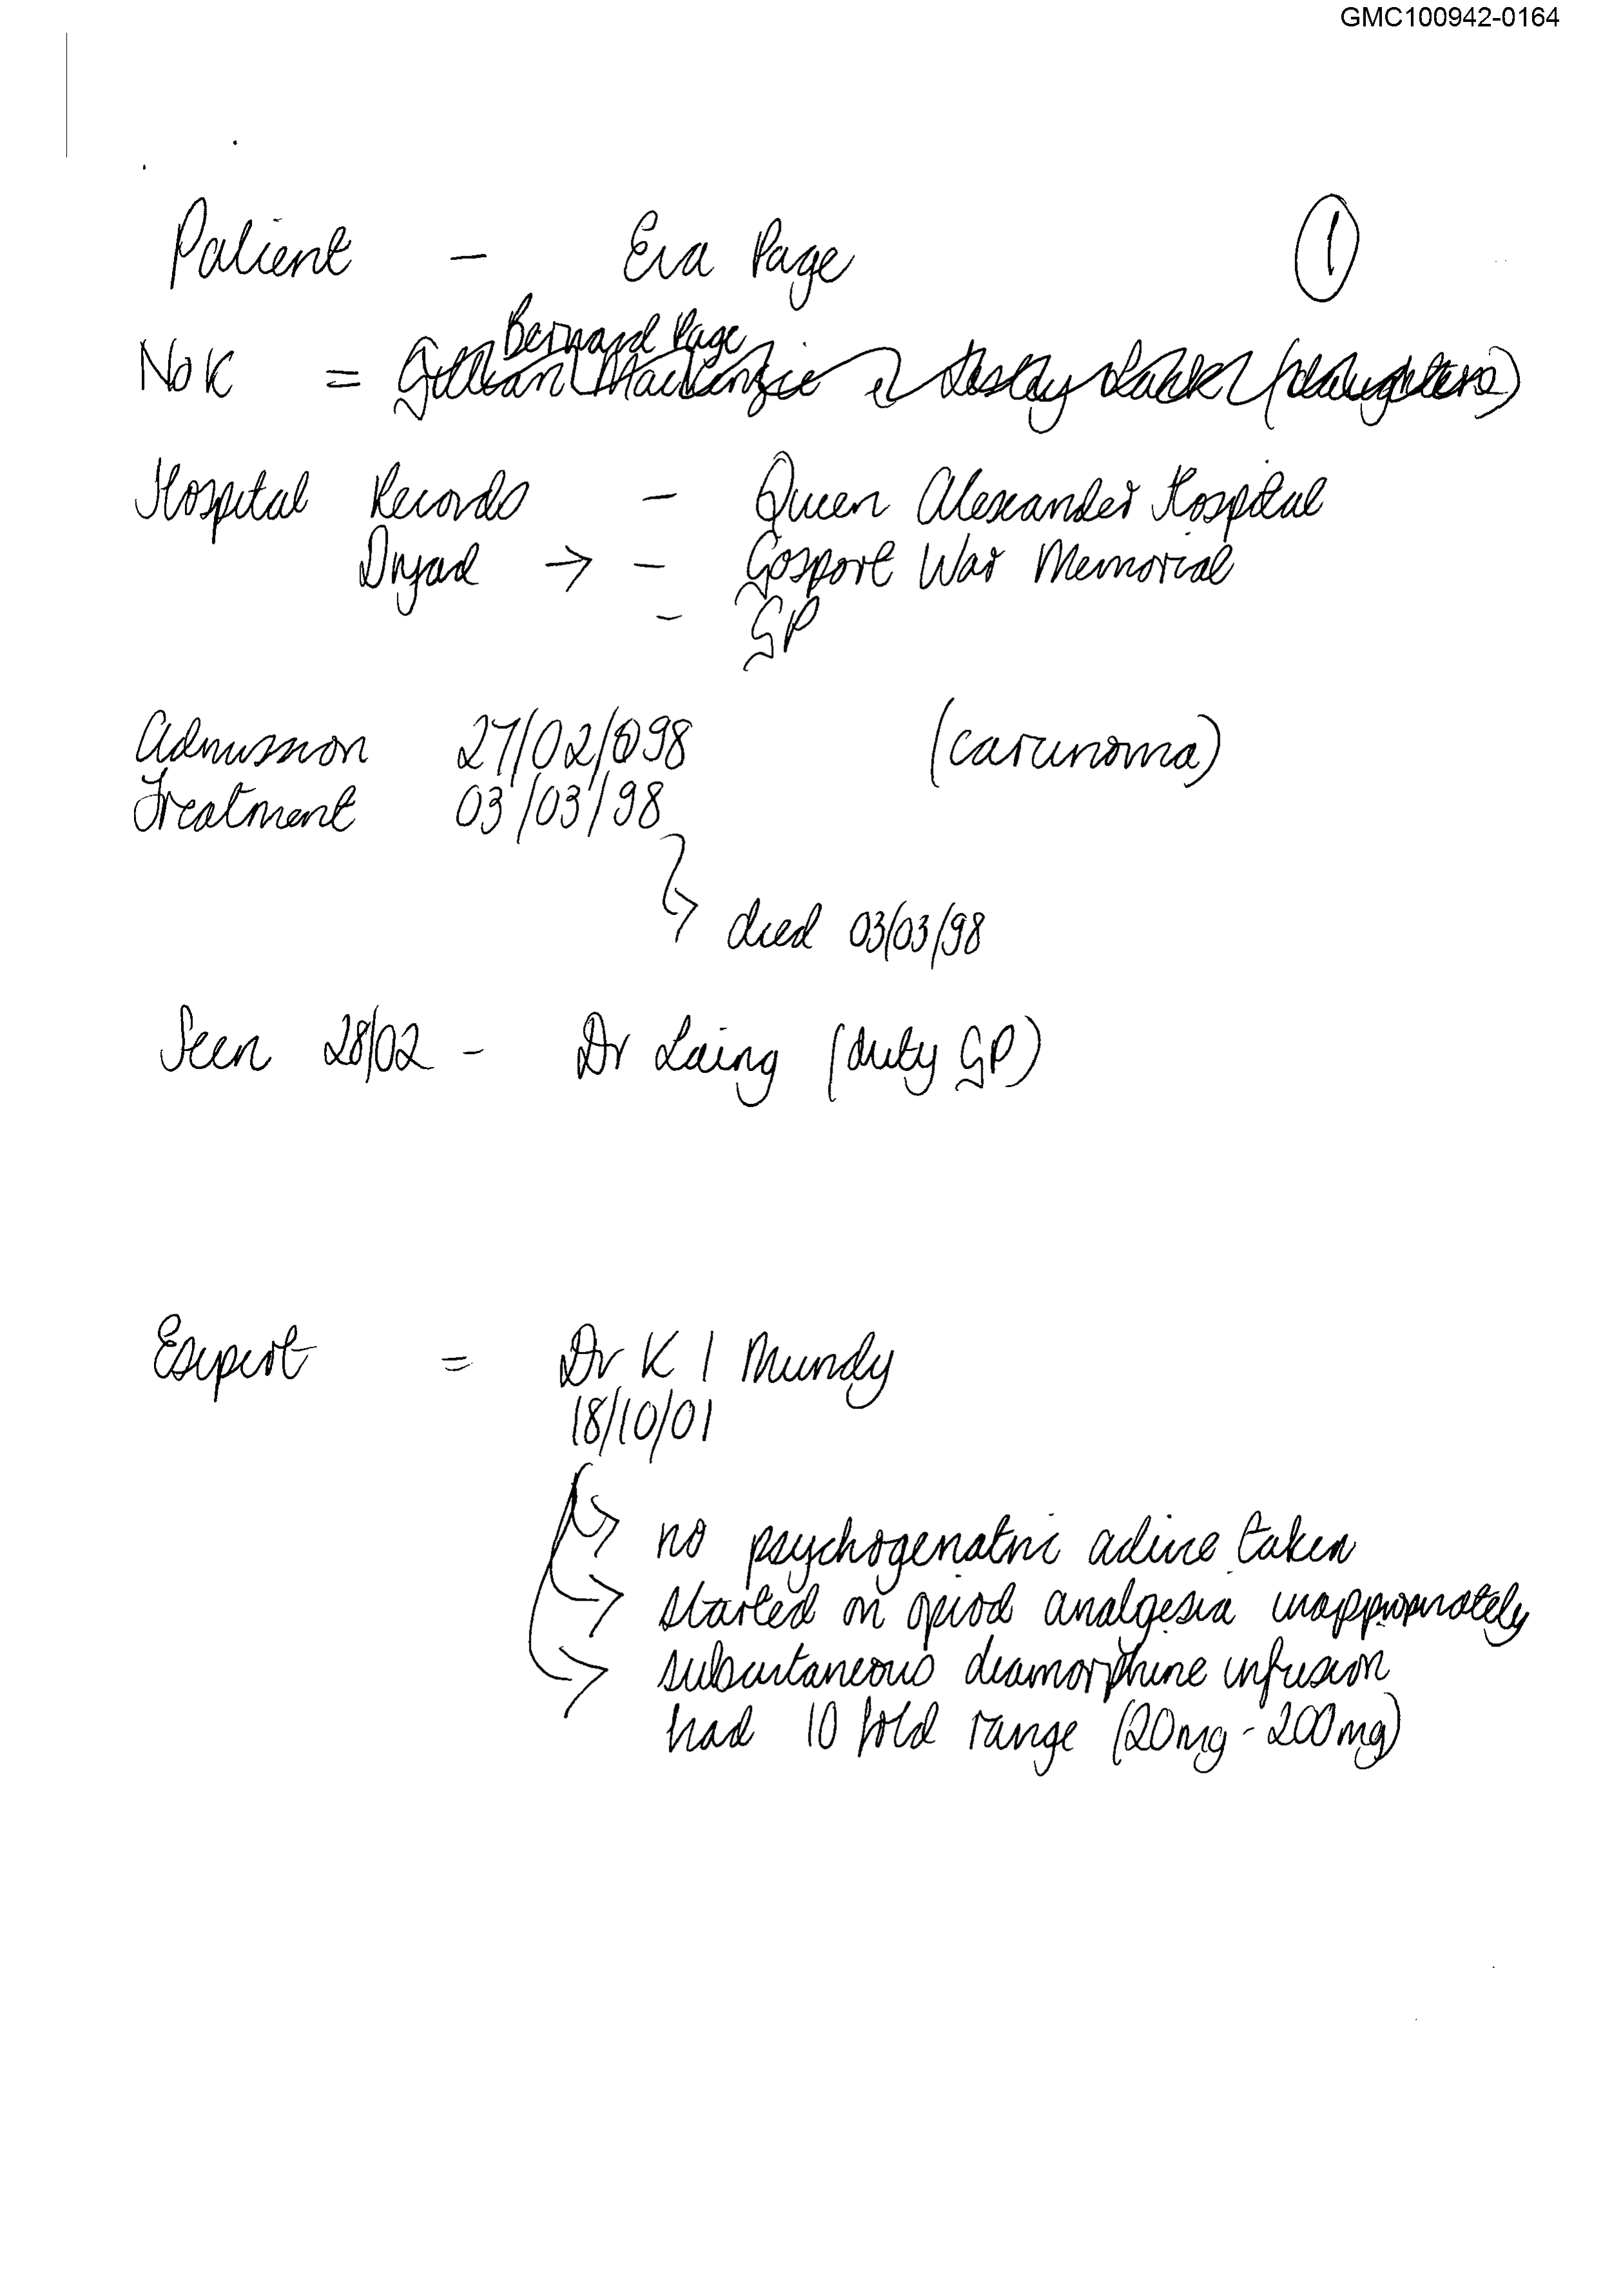 GMC100942-0164
Patient - Eva Page 1
Bernard Page
NoK = Gillian Mackenzie & Lesley Lack (daughters)
Hospital Records - Queen Alexander Hospital
Dryad → - Gosport War Memorial
- GP
Admission 27/02/98 (carcinoma)
Treatment 03/03/98
↳ died 03/03/98
Seen 28/02 - Dr Laing (duty GP)
Expert = Dr K I Mundy
18/10/01
→ no psychogeriatric advice taken
→ started on opiod analgesia inappropriately
→ subcutaneous diamorphine infusion
had 10 fold range (20mg - 200mg)